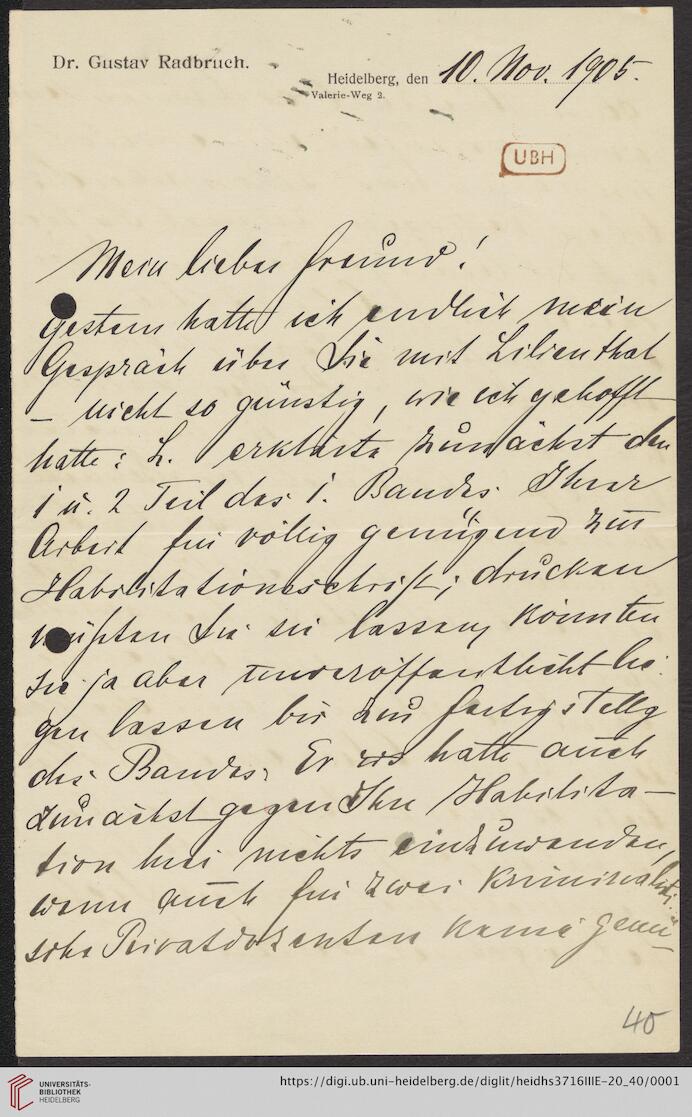 Dr. Gustav Radbruch.
Heidelberg, den 10. Nov. 1905.
Valerie-Weg 2.
UBH
Mein lieber Freund!
gestern hatte ich endlich mein
Gespräch über Sie mit Lilienthal
– nicht so günstig, wie ich gehofft
hatte: L. erklärte zunächst den
1 u. 2 Teil des 1. Bandes Ihrer
Arbeit für völlig genügend zur
Habilitationsschrift; drucken
müßten Sie sie lassen, könnten
sie ja aber unveröffentlicht lie-
gen lassen bis zur Fertigstellg
des Bandes. Er hatte auch
zunächst gegen Ihre Habilita-
tion hier nichts einzuwenden,
wenn auch für zwei kriminalisti-
sche Privatdozenten kaum genü-
40
UNIVERSITÄTS-
BIBLIOTHEK
HEIDELBERG
https://digi.ub.uni-heidelberg.de/diglit/heidhs3716IIIE-20_40/0001